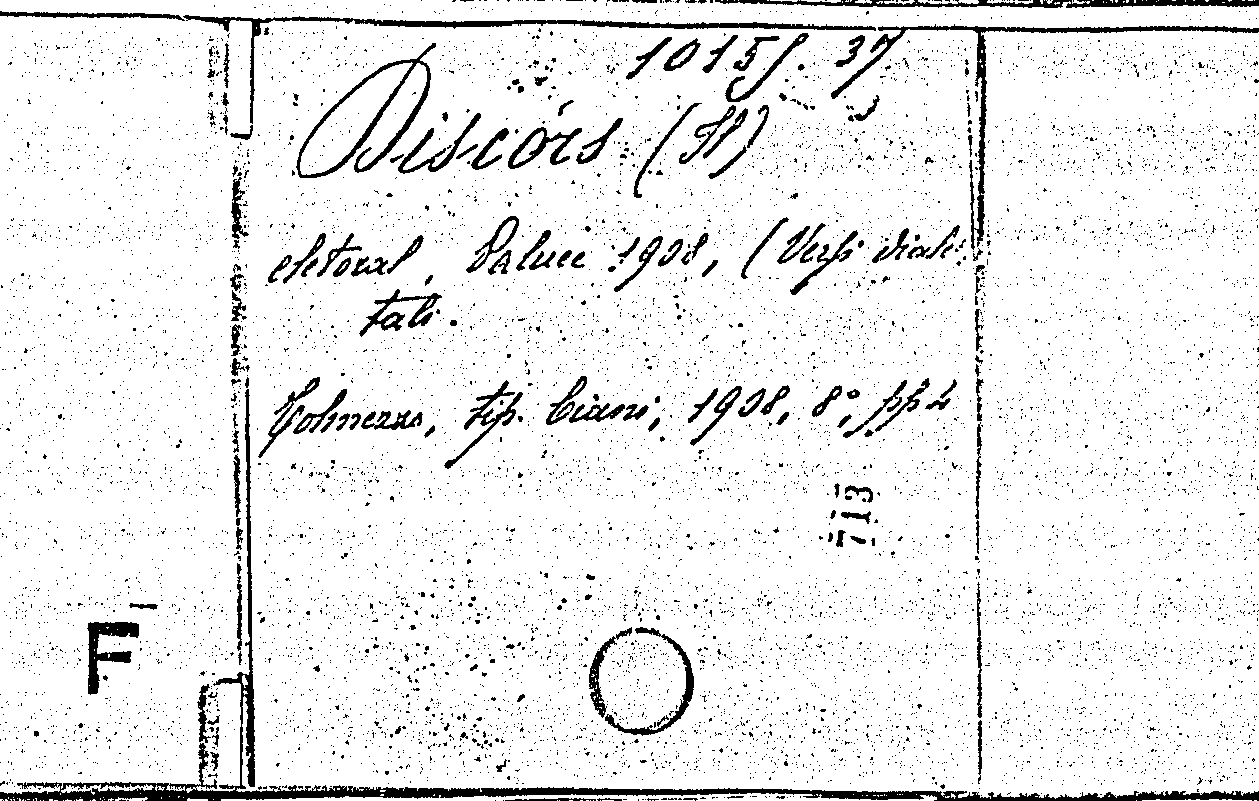 10155. 37
Discórs (Il)
eletoral, Paluce 1908, (Versi diale-
tali.
Tolmezzo, tip. Ciani, 1908, 8°, pp 2
713
F